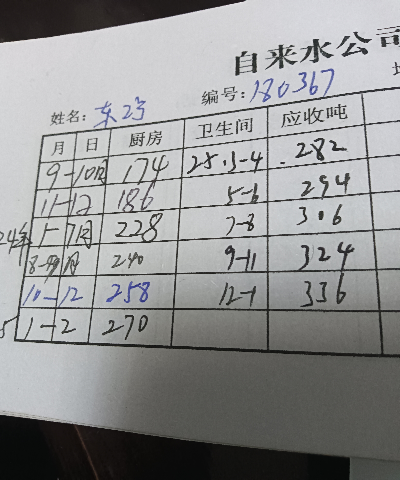 自来水公司
姓名: 东2号 编号: 180367
月 日 厨房 卫生间 应收吨
9-10月 174 25.3-4 282
11-12 186 5-6 294
24年 1-7月 228 7-8 306
8-9月 240 9-11 324
10-12 258 12-1 336
5 1-2 270